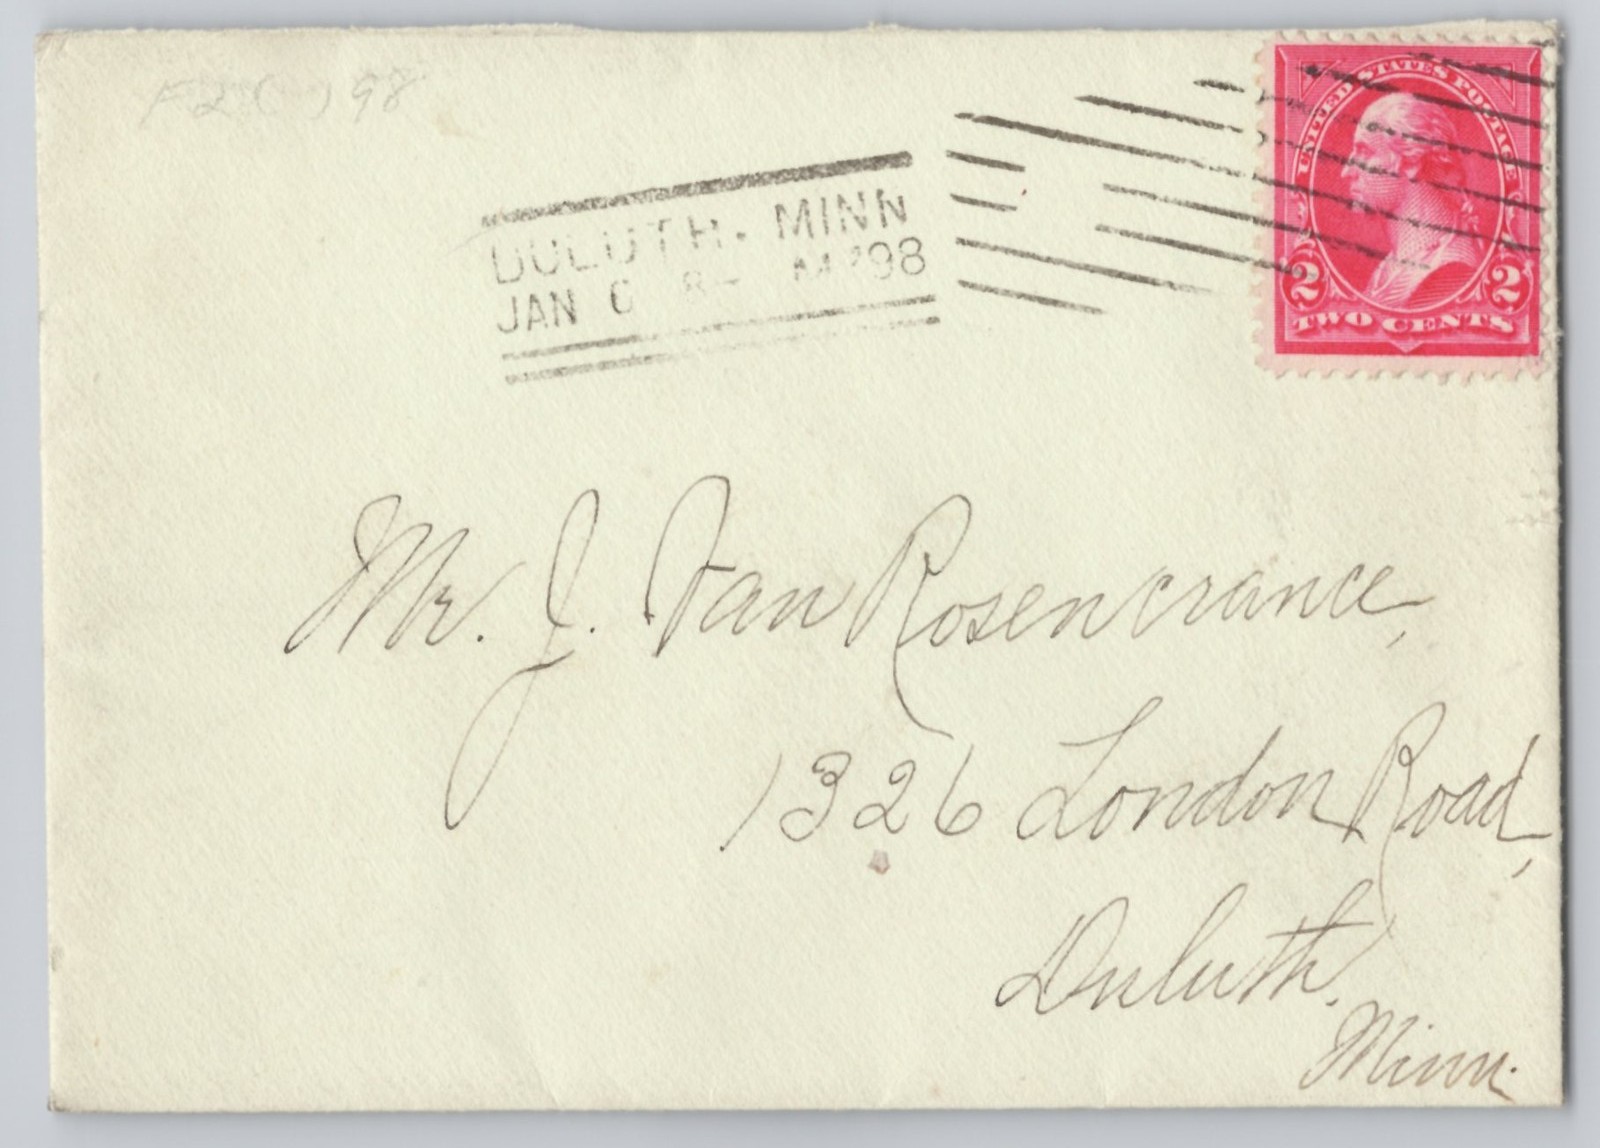 F2 ( ) 98
DULUTH. MINN
JAN 8- '98
UNITED STATES POSTAGE
2 2
TWO CENTS
Mr. J. Van Rosencrance,
1326 London Road,
Duluth.
Minn.